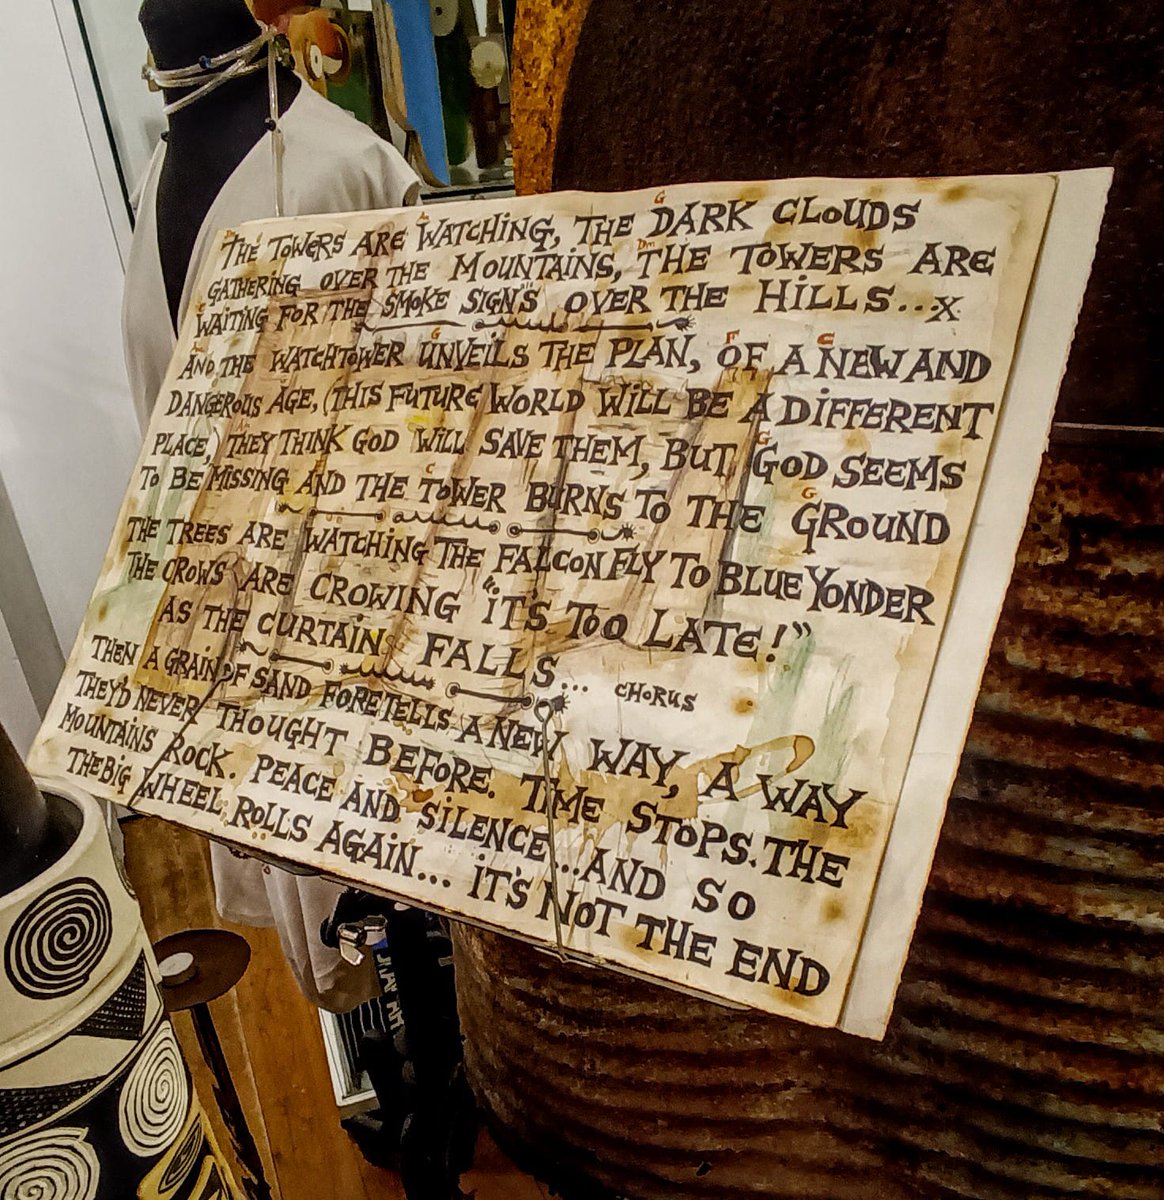 THE TOWERS ARE WATCHING, THE DARK CLOUDS
GATHERING OVER THE MOUNTAINS, THE TOWERS ARE
WAITING FOR THE SMOKE SIGNS OVER THE HILLS...X
AND THE WATCHTOWER UNVEILS THE PLAN, OF A NEW AND
DANGEROUS AGE, (THIS FUTURE WORLD WILL BE A DIFFERENT
PLACE,) THEY THINK GOD WILL SAVE THEM, BUT GOD SEEMS
TO BE MISSING AND THE TOWER BURNS TO THE GROUND
THE TREES ARE WATCHING THE FALCON FLY TO BLUE YONDER
THE CROWS ARE CROWING "IT'S TOO LATE!"
AS THE CURTAINS FALLS... CHORUS
THEN A GRAIN OF SAND FORETELLS A NEW WAY, A WAY
THEY'D NEVER THOUGHT BEFORE. TIME STOPS. THE
MOUNTAINS ROCK. PEACE AND SILENCE...AND SO
THE BIG WHEEL ROLLS AGAIN... IT'S NOT THE END